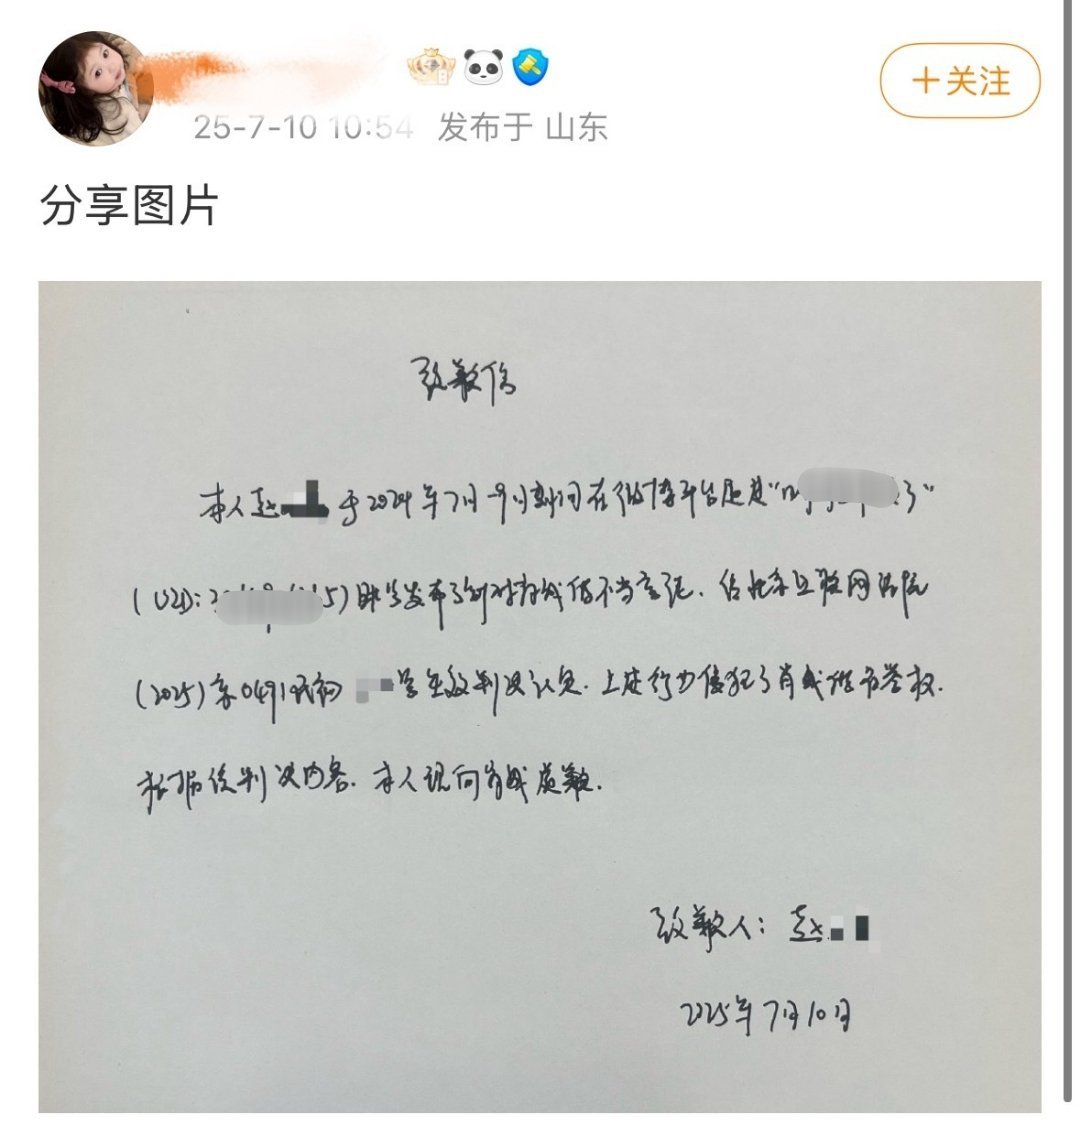 25-7-10 10:54 发布于 山东
+关注
分享图片
致歉信
本人赵 于2024年7月-9月期间在微博平台通过“
(UID: 5)账号发布了针对肖战的不当言论，经北京互联网法院
(2025)京0491民初 号生效判决认定，上述行为侵犯了肖战的名誉权。
根据该判决内容，本人现向肖战道歉。
致歉人：赵
2025年7月10日